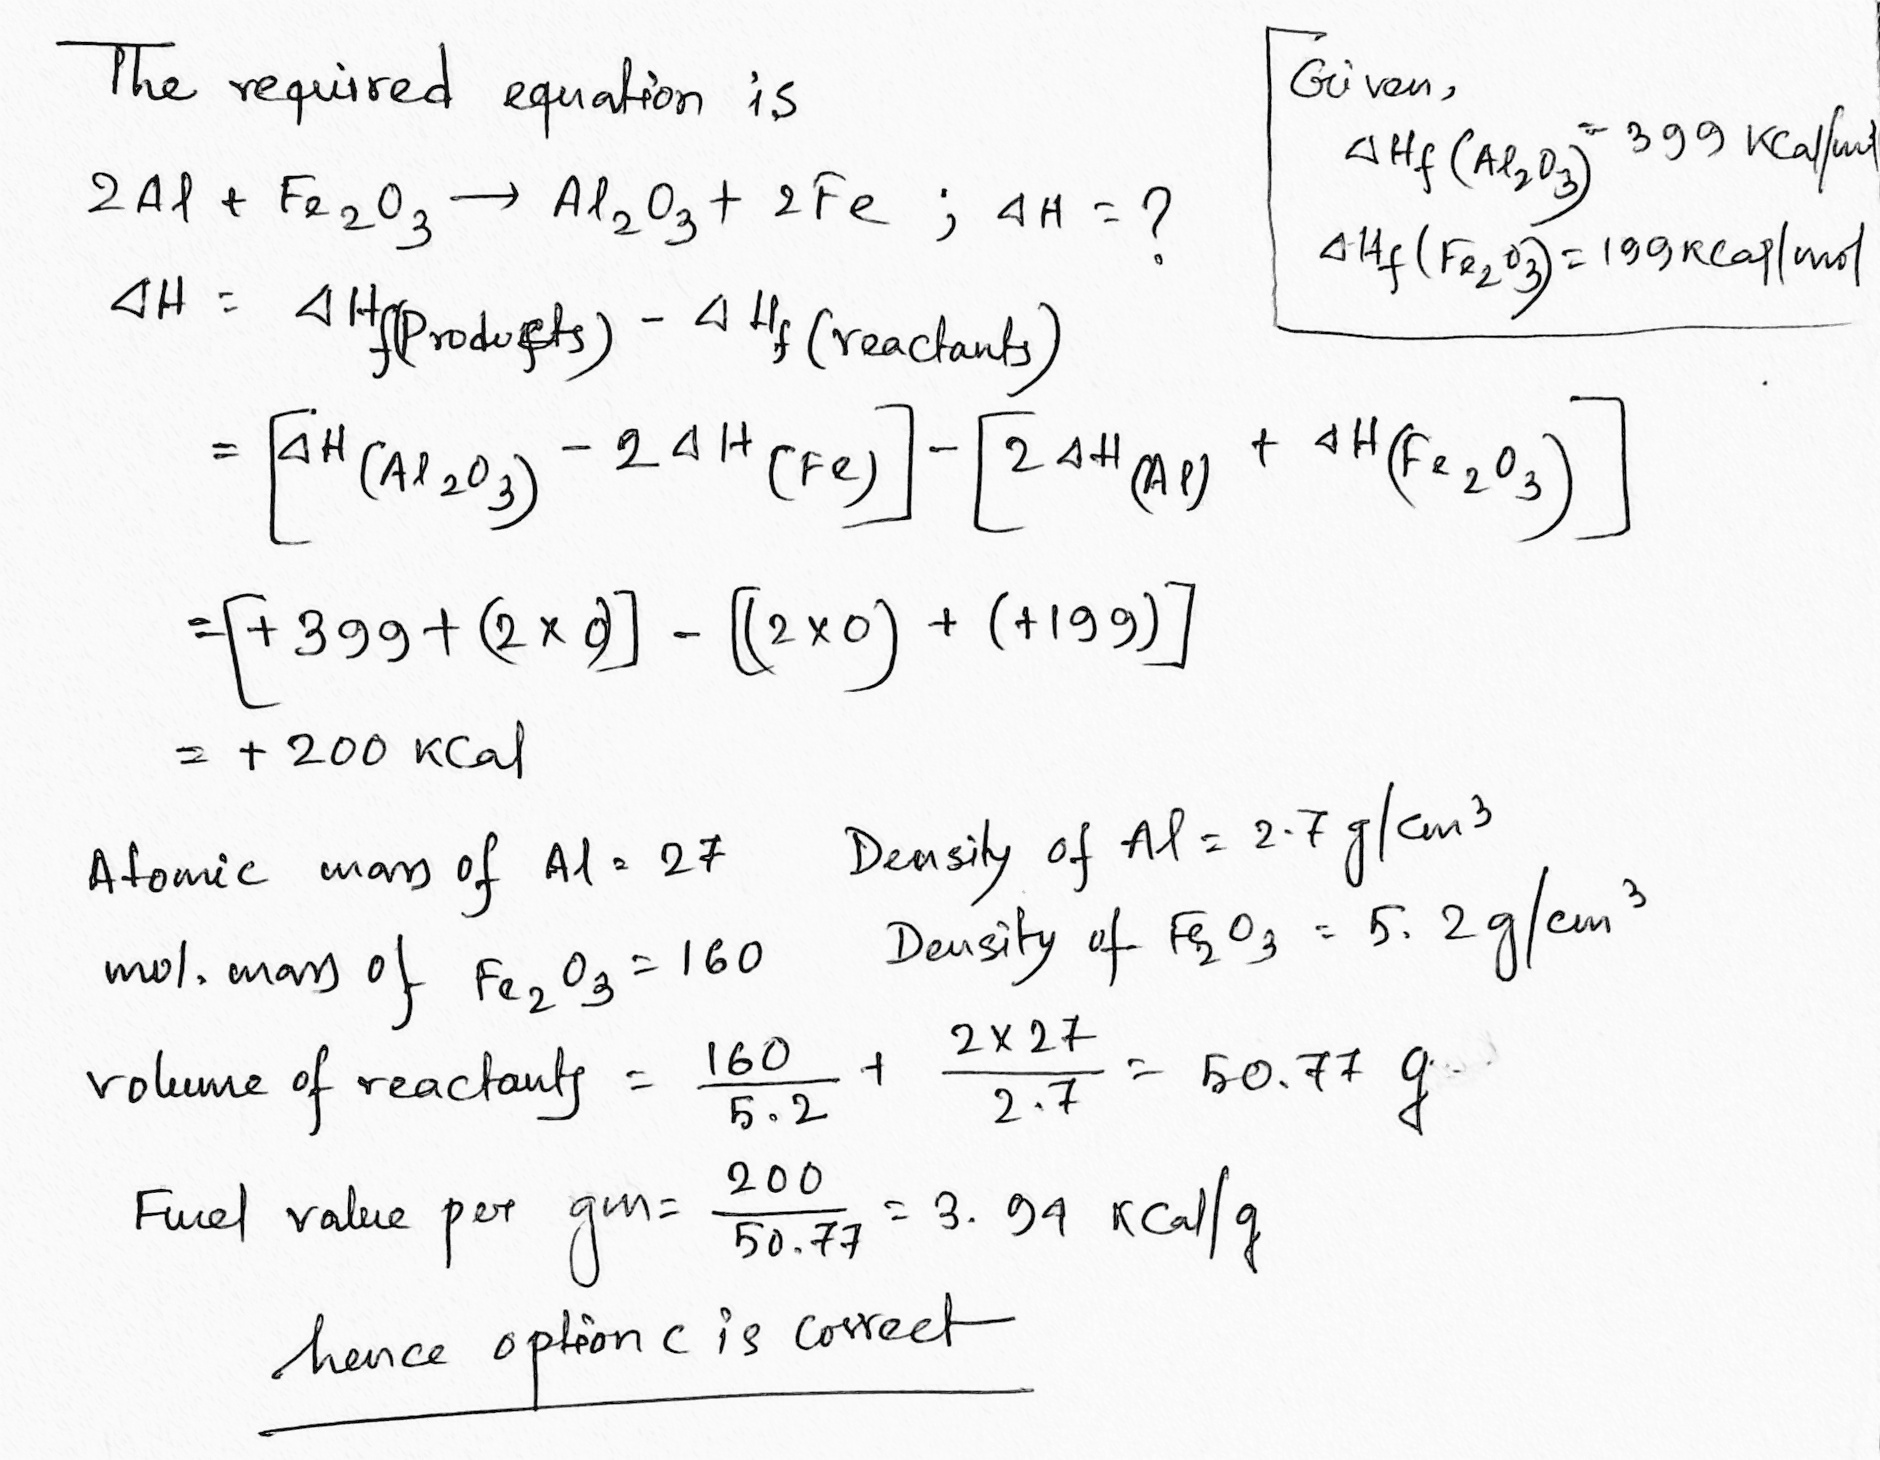 The required equation is
Given,
ΔHf (Al₂O₃) = 399 KCal/mol
2Al + Fe₂O₃ → Al₂O₃ + 2Fe ; ΔH = ?
ΔHf (Fe₂O₃) = 199 KCal/mol
ΔH = ΔHf(Products) - ΔHf (reactants)
= [ΔH (Al₂O₃) - 2ΔH (Fe)] - [2ΔH (Al) + ΔH (Fe₂O₃)]
= [+399 + (2×0)] - [(2×0) + (+199)]
= + 200 KCal
Atomic mass of Al = 27 Density of Al = 2.7 g/cm³
mol. mass of Fe₂O₃ = 160 Density of Fe₂O₃ = 5.2 g/cm³
volume of reactants = 160/5.2 + 2×27/2.7 = 50.77 g
Fuel value per gm = 200/50.77 = 3.94 KCal/g
hence option c is correct